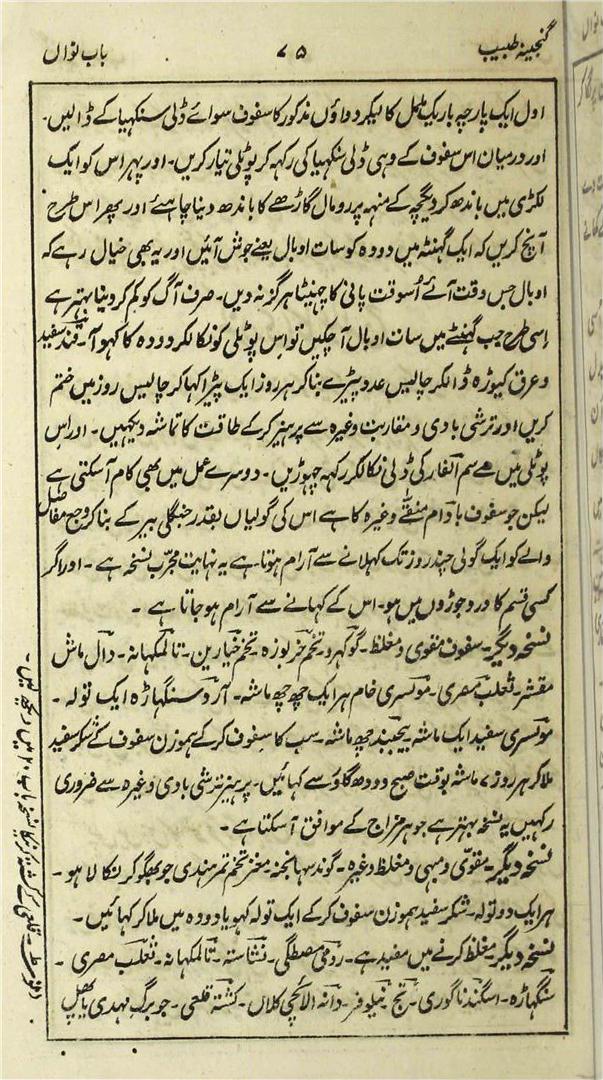 گنجینہ طبیب ۷۵ باب نواں
اول ایک پارچہ باریک ململ کا لیکر دواؤں مذکور کا سفوف سوائے ڈلی سنکہیا کے ڈالیں۔
اور درمیان اس سفوف کے وہی ڈلی سنکہیا کی رکہہ کر پوٹلی تیار کریں۔ اور پہر اس کو ایک
لکڑی میں باندھ کر دیگچہ کے منہہ پر رومال گاڑھے کا باندھ دینا چاہئے اور پھر اس طرح
آنچ کریں کہ ایک گہنٹہ میں دودہ کو سات اوبال یعنے جوش آئیں اور یہ بھی خیال رہے کہ
اوبال جس وقت آئے اُسوقت پانی کا چہینٹا ہرگز نہ دیں۔ صرف آگ کو کم کر دینا بہتر ہے
اسی طرح جب گہنٹے میں سات اوبال آ چکیں تو اس پوٹلی کو نکالکر دودہ کا کہوآ قند سفید
و عرق کیوڑہ ڈالکر چالیس عدد پیڑے بنا کر ہر روز ایک پیڑا کہا کر چالیس روز میں ختم
کریں اور ترشی بادی و مقاربت وغیرہ سے پرہیز کر کے طاقت کا تماشہ دیکہیں۔ اور اس
پوٹلی میں سے سم الفار کی ڈلی نکالکر رکہہ چہوڑیں۔ دوسرے عمل میں بھی کام آسکتی ہے
لیکن جو سفوف بادام منقے وغیرہ کا ہے اس کی گولیاں بقدر جنگلی بیر کے بنا کر وجع مفاصل
والے کو ایک گولی چند روز تک کہلانے سے آرام ہوتا ہے یہ نہایت مجرب نسخہ ہے۔ اور اگر
کسی قسم کا درد جوڑوں میں ہو۔ اس کے کہانے سے آرام ہو جاتا ہے۔
نسخہ دیگر۔ سفوف مقوی و مغلظ۔ گوکہرو۔ تخم خربوزہ۔ تخم خیارین۔ تالمکہانہ۔ دال ماش
مقشر ثعلب مصری۔ مولسری خام ہر ایک چھ چھ ماشہ۔ آرد سنگہاڑہ ایک تولہ۔
موسری سفید ایک ماشہ۔ بیجبند چھ ماشہ۔ سب کا سفوف کر کے ہموزن سفوف کے شکر سفید
ملا کر ہر روز ۷ ماشہ بوقت صبح دودھ گاؤ سے کہائیں۔ پرہیز ترشی بادی وغیرہ سے ضروری
رکہیں یہ نسخہ بہتر ہے جو ہر مزاج کے موافق آ سکتا ہے۔
نسخہ دیگر۔ مقوی و مبہی و مغلظ وغیرہ۔ گوند سہانجنہ۔ مغز تخم تمر ہندی جو بھگو کر نکالا ہو۔
ہر ایک دو تولہ۔ شکر سفید ہموزن سفوف کر کے ایک تولہ کہویا دودہ میں ملا کر کہائیں۔
نسخہ دیگر۔ مغلظ کرنے میں مفید ہے۔ رومی مصطگی۔ نشاستہ۔ تالمکہانہ۔ ثعلب مصری۔
سنگہاڑہ۔ اسگند ناگوری۔ تج۔ نیلوفر۔ دانہ الائچی کلاں۔ کشتہ قلعی۔ جو برگ مہدی یا
نوٹ۔ قلعی کے کشتہ کرنیکا نسخہ باب ۲۰ میں دیکھیں۔